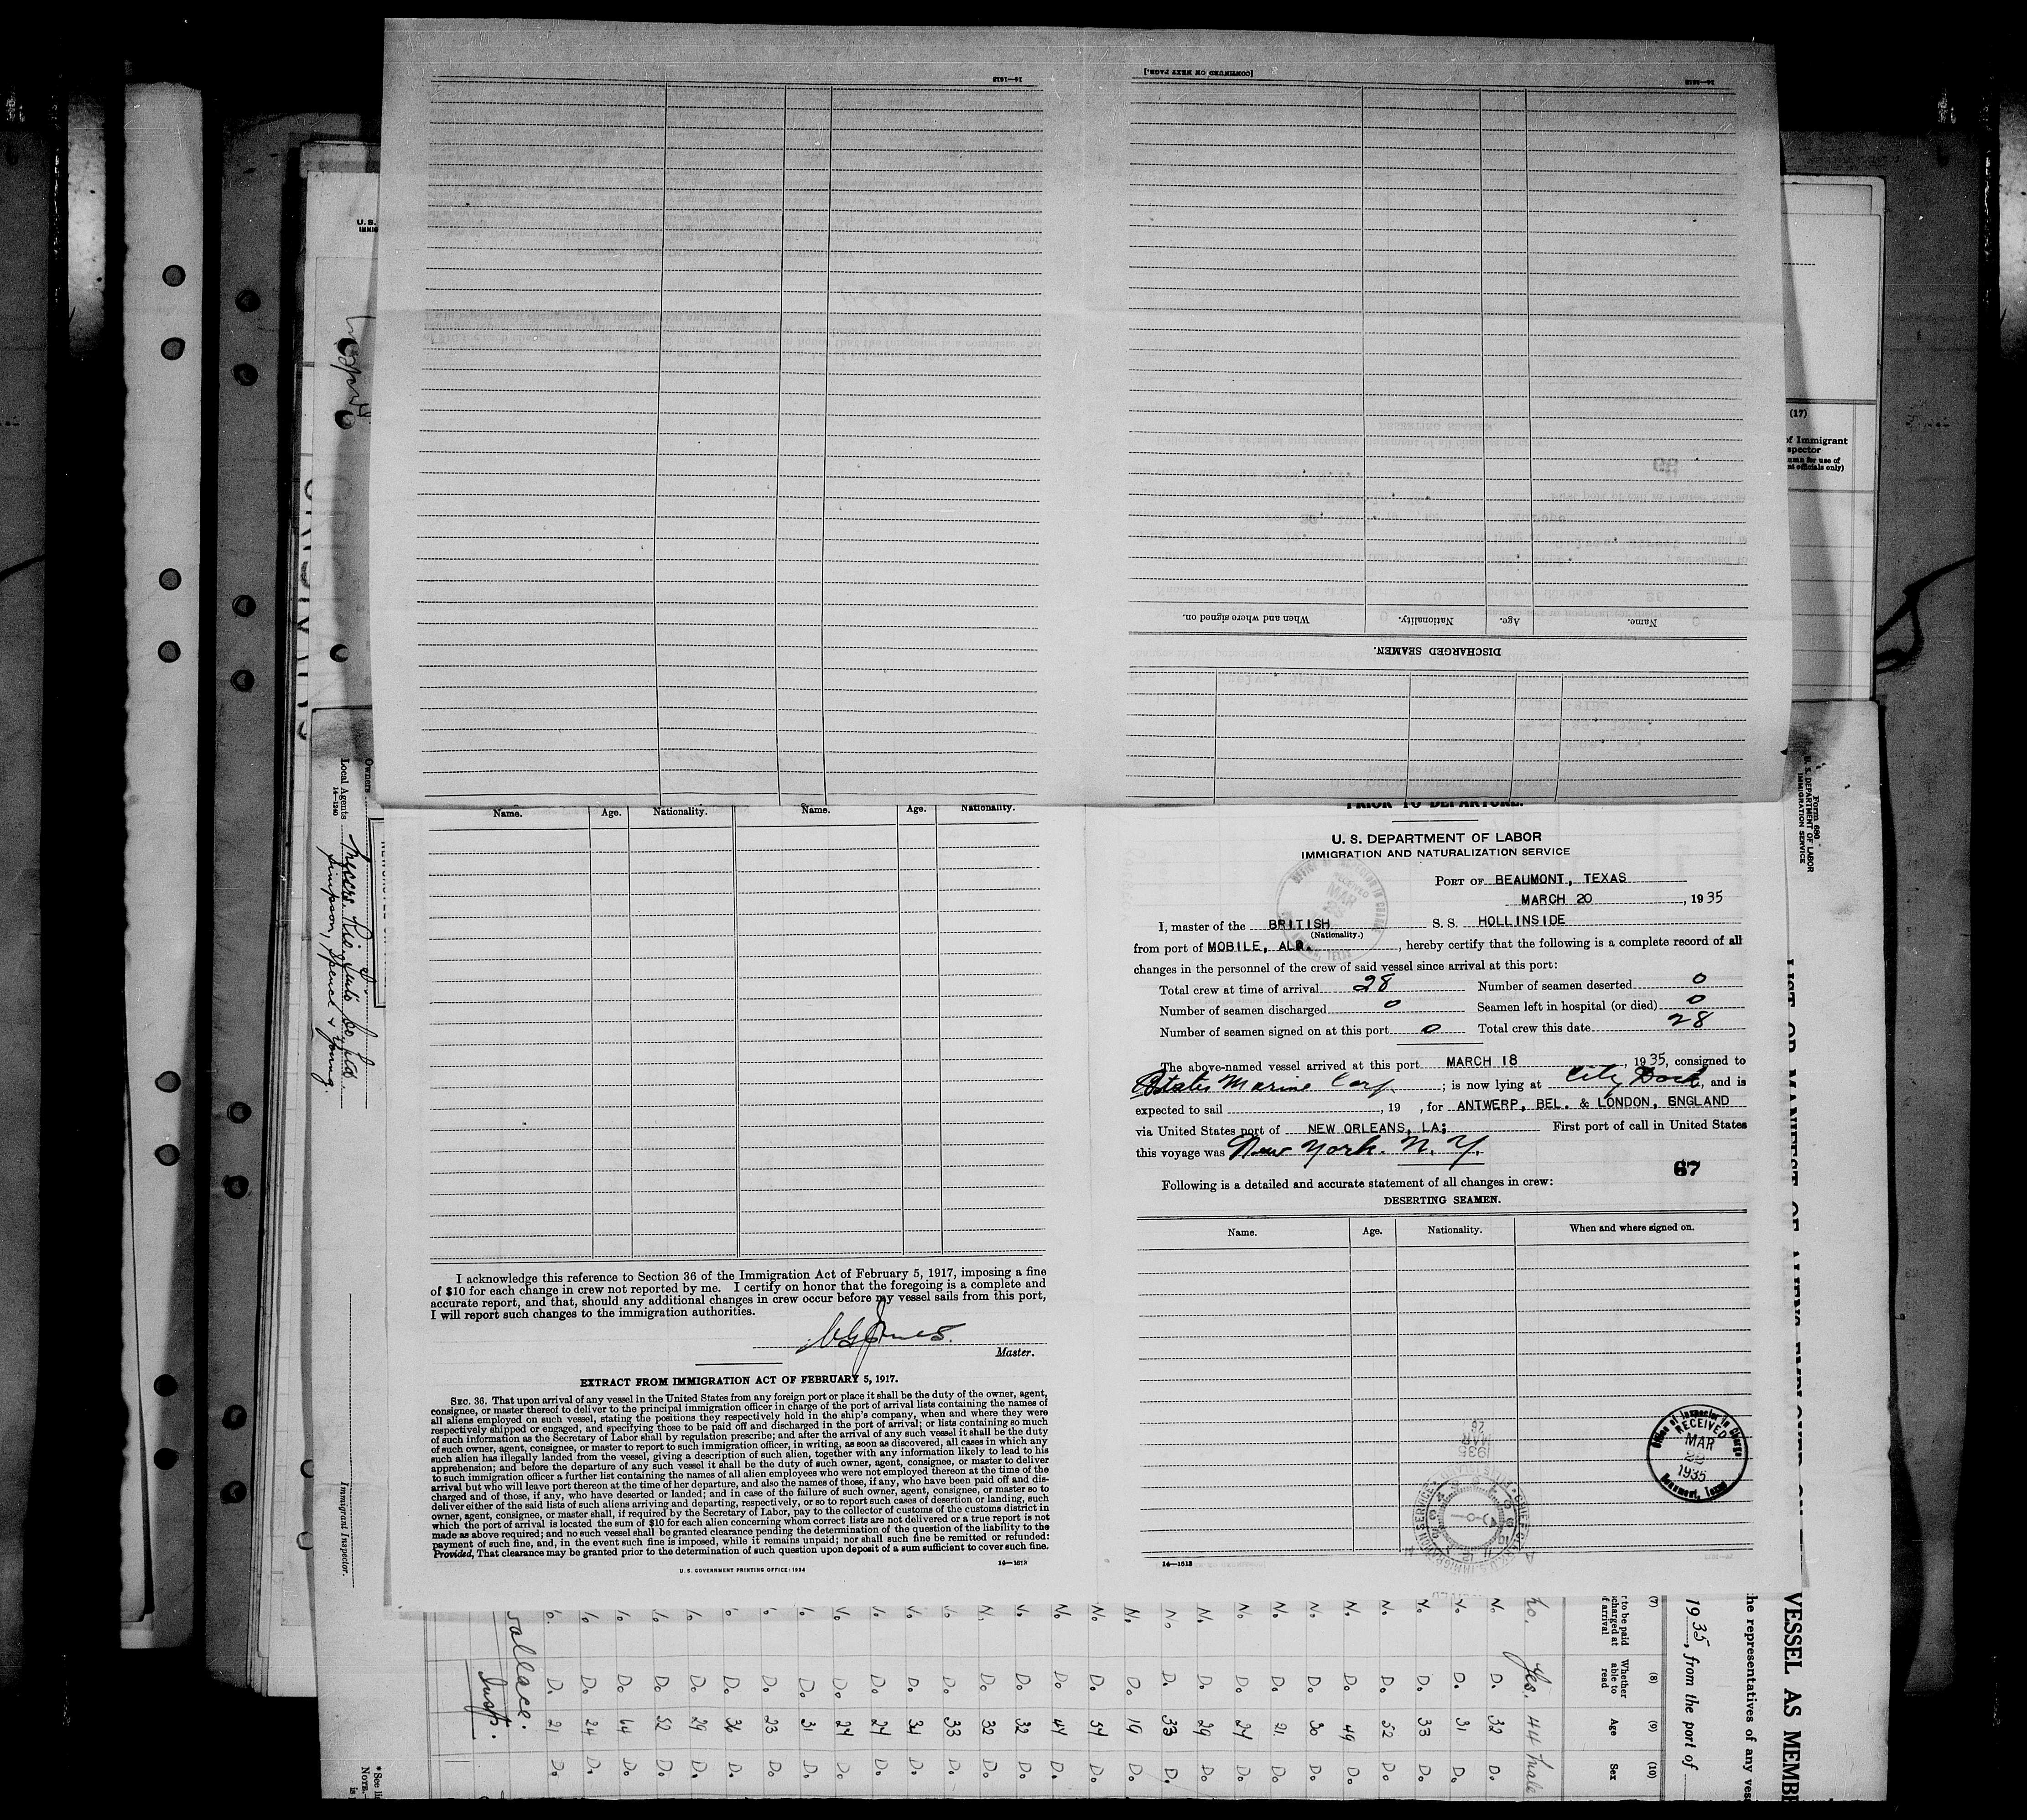 16—1613
[CONTINUED ON NEXT PAGE.]
16—1613
When and where signed on.
Nationality.
Age.
Name.
DISCHARGED SEAMEN.
Name. Age. Nationality. Name. Age. Nationality.
I acknowledge this reference to Section 36 of the Immigration Act of February 5, 1917, imposing a fine
of $10 for each change in crew not reported by me. I certify on honor that the foregoing is a complete and
accurate report, and that, should any additional changes in crew occur before my vessel sails from this port,
I will report such changes to the immigration authorities.
Master.
EXTRACT FROM IMMIGRATION ACT OF FEBRUARY 5, 1917.
SEC. 36. That upon arrival of any vessel in the United States from any foreign port or place it shall be the duty of the owner, agent,
consignee, or master thereof to deliver to the principal immigration officer in charge of the port of arrival lists containing the names of
all aliens employed on such vessel, stating the positions they respectively hold in the ship's company, when and where they were
respectively shipped or engaged, and specifying those to be paid off and discharged in the port of arrival; or lists containing so much
of such information as the Secretary of Labor shall by regulation prescribe; and after the arrival of any such vessel it shall be the duty
of such owner, agent, consignee, or master to report to such immigration officer, in writing, as soon as discovered, all cases in which any
such alien has illegally landed from the vessel, giving a description of such alien, together with any information likely to lead to his
apprehension; and before the departure of any such vessel it shall be the duty of such owner, agent, consignee, or master to deliver
to such immigration officer a further list containing the names of all alien employees who were not employed thereon at the time of the
arrival but who will leave port thereon at the time of her departure, and also the names of those, if any, who have been paid off and dis-
charged and of those, if any, who have deserted or landed; and in case of the failure of such owner, agent, consignee, or master so to
deliver either of the said lists of such aliens arriving and departing, respectively, or so to report such cases of desertion or landing, such
owner, agent, consignee, or master shall, if required by the Secretary of Labor, pay to the collector of customs of the customs district in
which the port of arrival is located the sum of $10 for each alien concerning whom correct lists are not delivered or a true report is not
made as above required; and no such vessel shall be granted clearance pending the determination of the question of the liability to the
payment of such fine, and, in the event such fine is imposed, while it remains unpaid; nor shall such fine be remitted or refunded:
Provided, That clearance may be granted prior to the determination of such question upon deposit of a sum sufficient to cover such fine.
U. S. GOVERNMENT PRINTING OFFICE: 1934 16—1613
PRIOR TO DEPARTURE.
U. S. DEPARTMENT OF LABOR
IMMIGRATION AND NATURALIZATION SERVICE
PORT OF BEAUMONT, TEXAS
MARCH 20, 1935
I, master of the BRITISH S. S. HOLLINSIDE
(Nationality.)
from port of MOBILE, ALA., hereby certify that the following is a complete record of all
changes in the personnel of the crew of said vessel since arrival at this port:
Total crew at time of arrival 28 Number of seamen deserted 0
Number of seamen discharged 0 Seamen left in hospital (or died) 0
Number of seamen signed on at this port 0 Total crew this date 28
The above-named vessel arrived at this port MARCH 18, 1935, consigned to
States Marine Corp.; is now lying at City Dock, and is
expected to sail , 19 , for ANTWERP, BEL. & LONDON, ENGLAND
via United States port of NEW ORLEANS, LA; First port of call in United States
this voyage was New York. N. Y.
67
Following is a detailed and accurate statement of all changes in crew:
DESERTING SEAMEN.
Name. Age. Nationality. When and where signed on.
Office of Inspector in Charge
RECEIVED
MAR
22
1935
Beaumont, Texas
1935
MAR
26
16—1613
(17)
of Immigrant
spector
Form 680
U. S. DEPARTMENT OF LABOR
IMMIGRATION SERVICE
LIST OR MANIFEST OF ALIENS EMPLOYED ON
VESSEL AS MEMBE
he representatives of any vess
1935, from the port of
(7) (8) (9) (10)
Whether able to read
Age
Sex
Yes. 44 Male
N. Do 32 Do
Do 31 Do
Do 33 Do
N. Do 52 Do
N. Do 49 Do
N. Do 30 Do
N. Do 21 Do
N. Do 24 Do
N. Do 29 Do
No Do 33 Do
N. Do 19 Do
No Do 54 Do
No Do 44 Do
Do 32 Do
N. Do 32 Do
Do 33 Do
Do 31 Do
Do 24 Do
Do 24 Do
Do 31 Do
Do 23 Do
Do 36 Do
Do 29 Do
Do 52 Do
Do 64 Do
Do 24 Do
Do 21 Do
Wallace.
Insp.
Owners
Local Agents
16—1240
Simpson, Spence & Young
Immigrant Inspector.